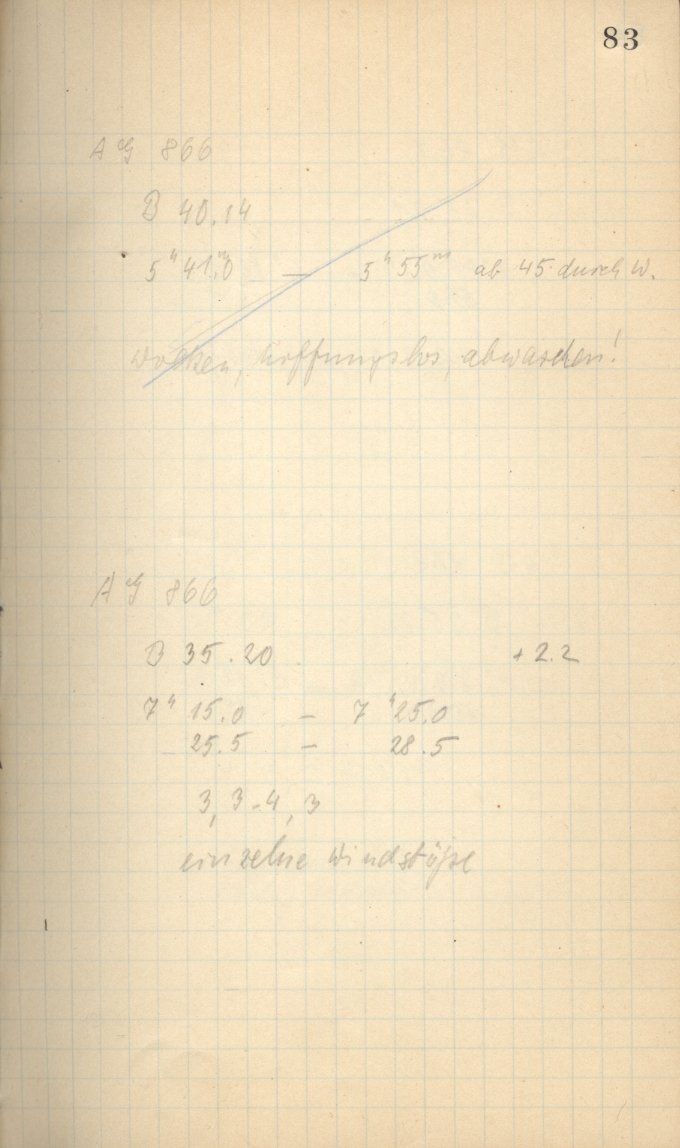 83
AG 866
B 40.14
5ʰ 41.ᵐ0 — 5ʰ 55ᵐ ab 45 durch W.
Wolken, hoffnungslos, abwaschen!
AG 866
B 35.20 + 2.2
7ʰ 15.0 — 7ʰ 25.0
25.5 — 28.5
3, 3-4, 3
einzelne Windstöße